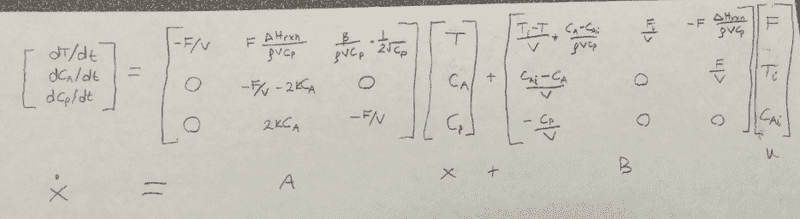 [dT/dt dCA/dt dCp/dt] = [-F/V F ΔHrxn/ρVCp B/ρVCp · 1/2√Cp 0 -F/V - 2KCA 0 0 2KCA -F/V] [T CA Cp] + [Ti-T/V + CA-CAi/ρVCp F/V -F ΔHrxn/ρVCp CAi-CA/V 0 F/V -Cp/V 0 0] [F Ti CAi]
ẋ = A x + B u